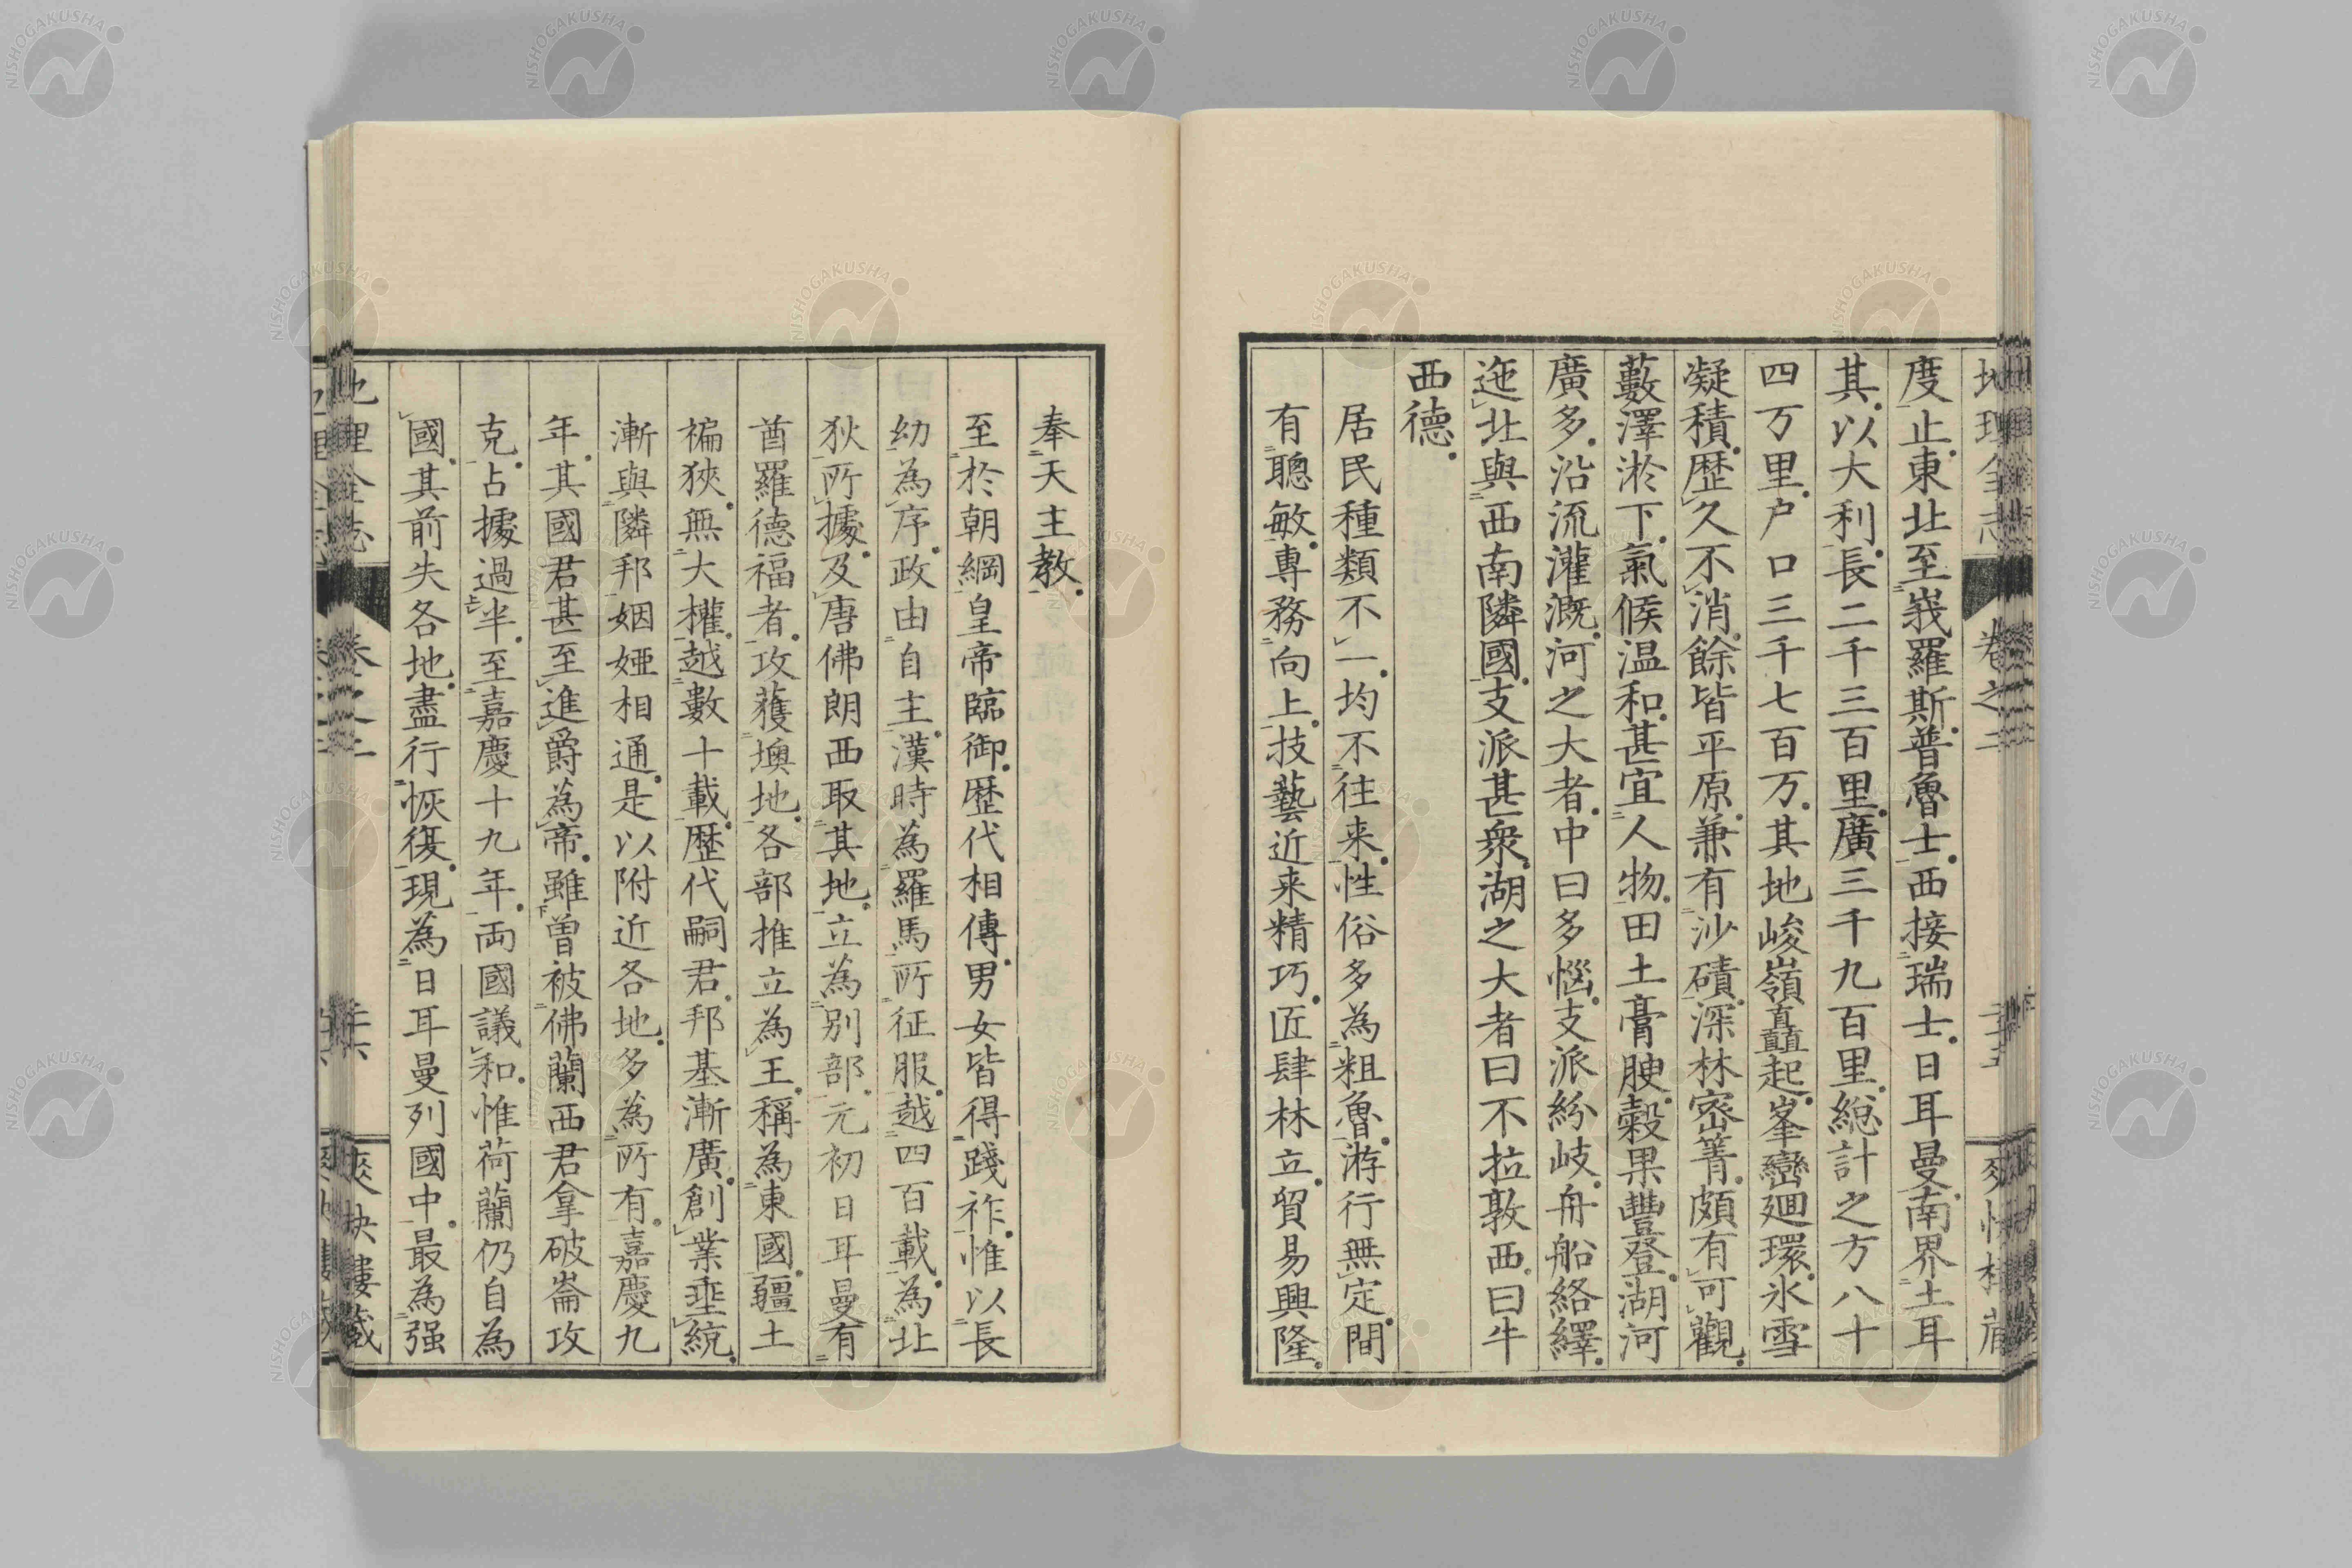 度止東北至峩羅斯普魯士西接瑞士日耳曼南界土耳
其以大利長二千三百里廣三千九百里總計之方八十
四万里户口三千七百万其地峻嶺矗起峯巒廻環氷雪
凝積歴久不消餘皆平原兼有沙磧深林密箐頗有可觀
藪澤淤下氣候温和甚宜人物田土膏腴穀果豐登湖河
廣多沿流灌溉河之大者中曰多惱支派紛岐舟船絡繹
迤北與西南隣國支派甚衆湖之大者曰不拉敦西曰牛
西德
居民種類不一均不往来性俗多為粗魯游行無定間
有聰敏專務向上技藝近来精巧匠肆林立貿易興隆
奉天主教
至於朝綱皇帝臨御歴代相傳男女皆得踐祚惟以長
幼為序政由自主漢時為羅馬所征服越四百載為北
狄所據及唐佛朗西取其地立為别部元初日耳曼有
酋羅德福者攻獲墺地各部推立為王稱為東國疆土
褊狹無大權越數十載歴代嗣君邦基漸廣創業埀統
漸與隣邦姻婭相通是以附近各地多為所有嘉慶九
年其國君甚至進爵為帝雖曾被佛蘭西君拿破崙攻
克占據過半至嘉慶十九年両國議和惟荷蘭仍自為
國其前失各地盡行恢復現為日耳曼列國中最為强
NISHOGAKUSHA